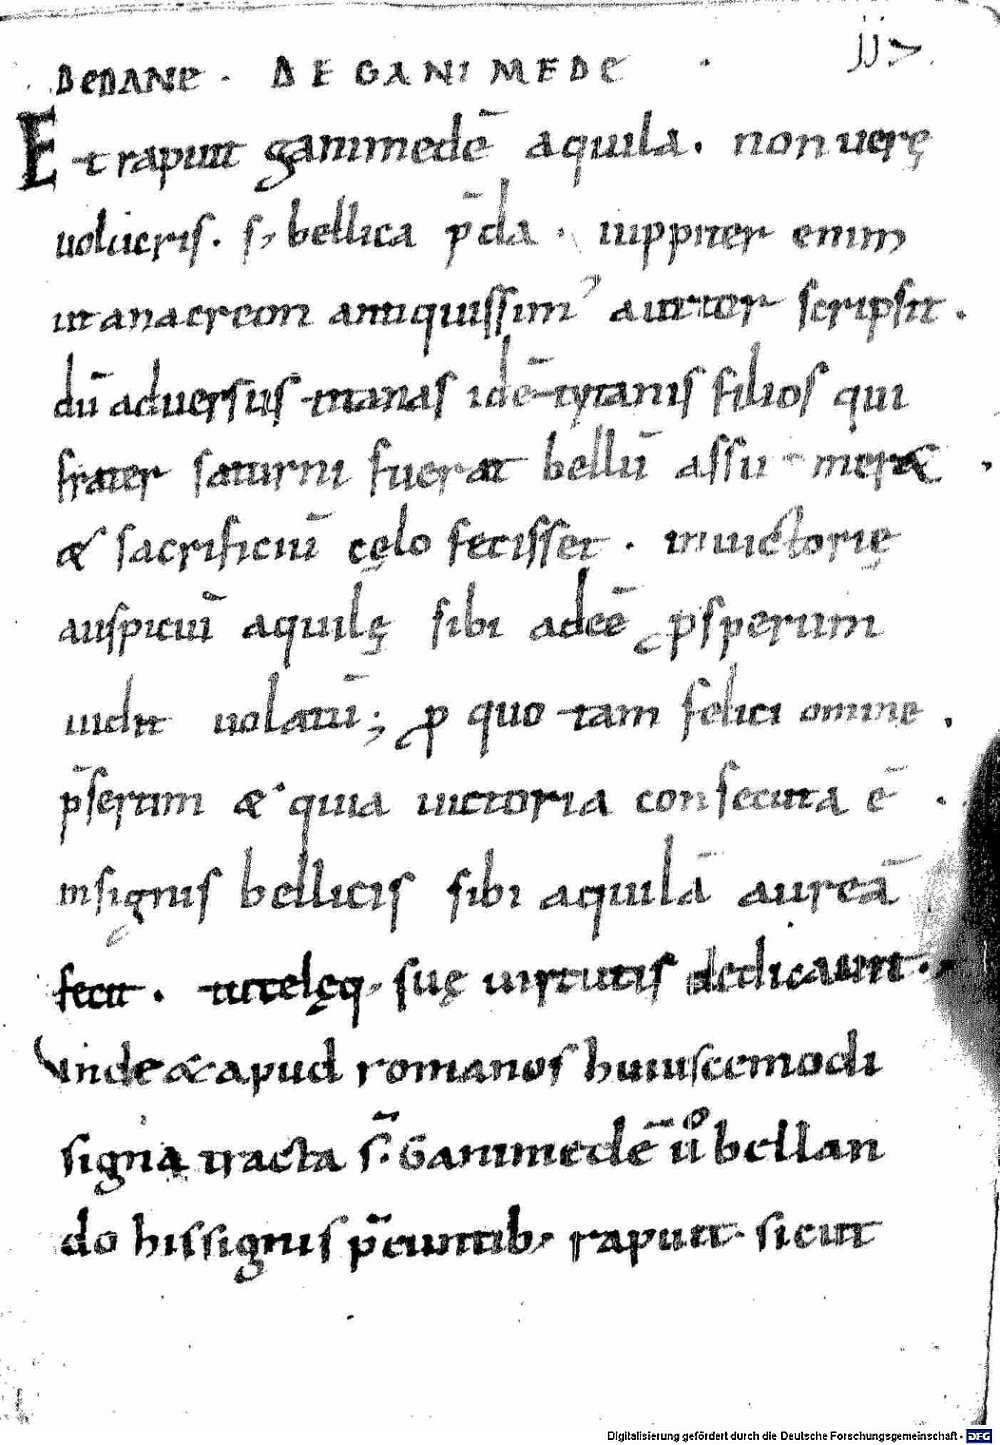 DEDANE · DE GANIMEDE · jj>
Et rapuit ganimedē aquila. non uerę
uolucris. s; bellica p̄da. iuppiter enim
ut anacreon antiquissim᾿ auctor scripsit.
dū aduersus titanas idē tytanis filios qui
frater saturni fuerat bellū assumeret,
& sacrificiū cęlo fecisset. in uictorię
auspiciū aquilę sibi adeē ꝓsperum
uidit uolatū; ꝓ quo tam felici omine.
p̄sertim & quia uictoria consecuta ē.
insignis bellicis sibi aquilā aureā
fecit. tutelęq; suę uirtutis dedicauit.
Vnde & apud romanos huiuscemodi
signa tracta s̄. Ganimedē ū° bellan
do his signis p̄euntib; rapuit. sicut
Digitalisierung gefördert durch die Deutsche Forschungsgemeinschaft - DFG